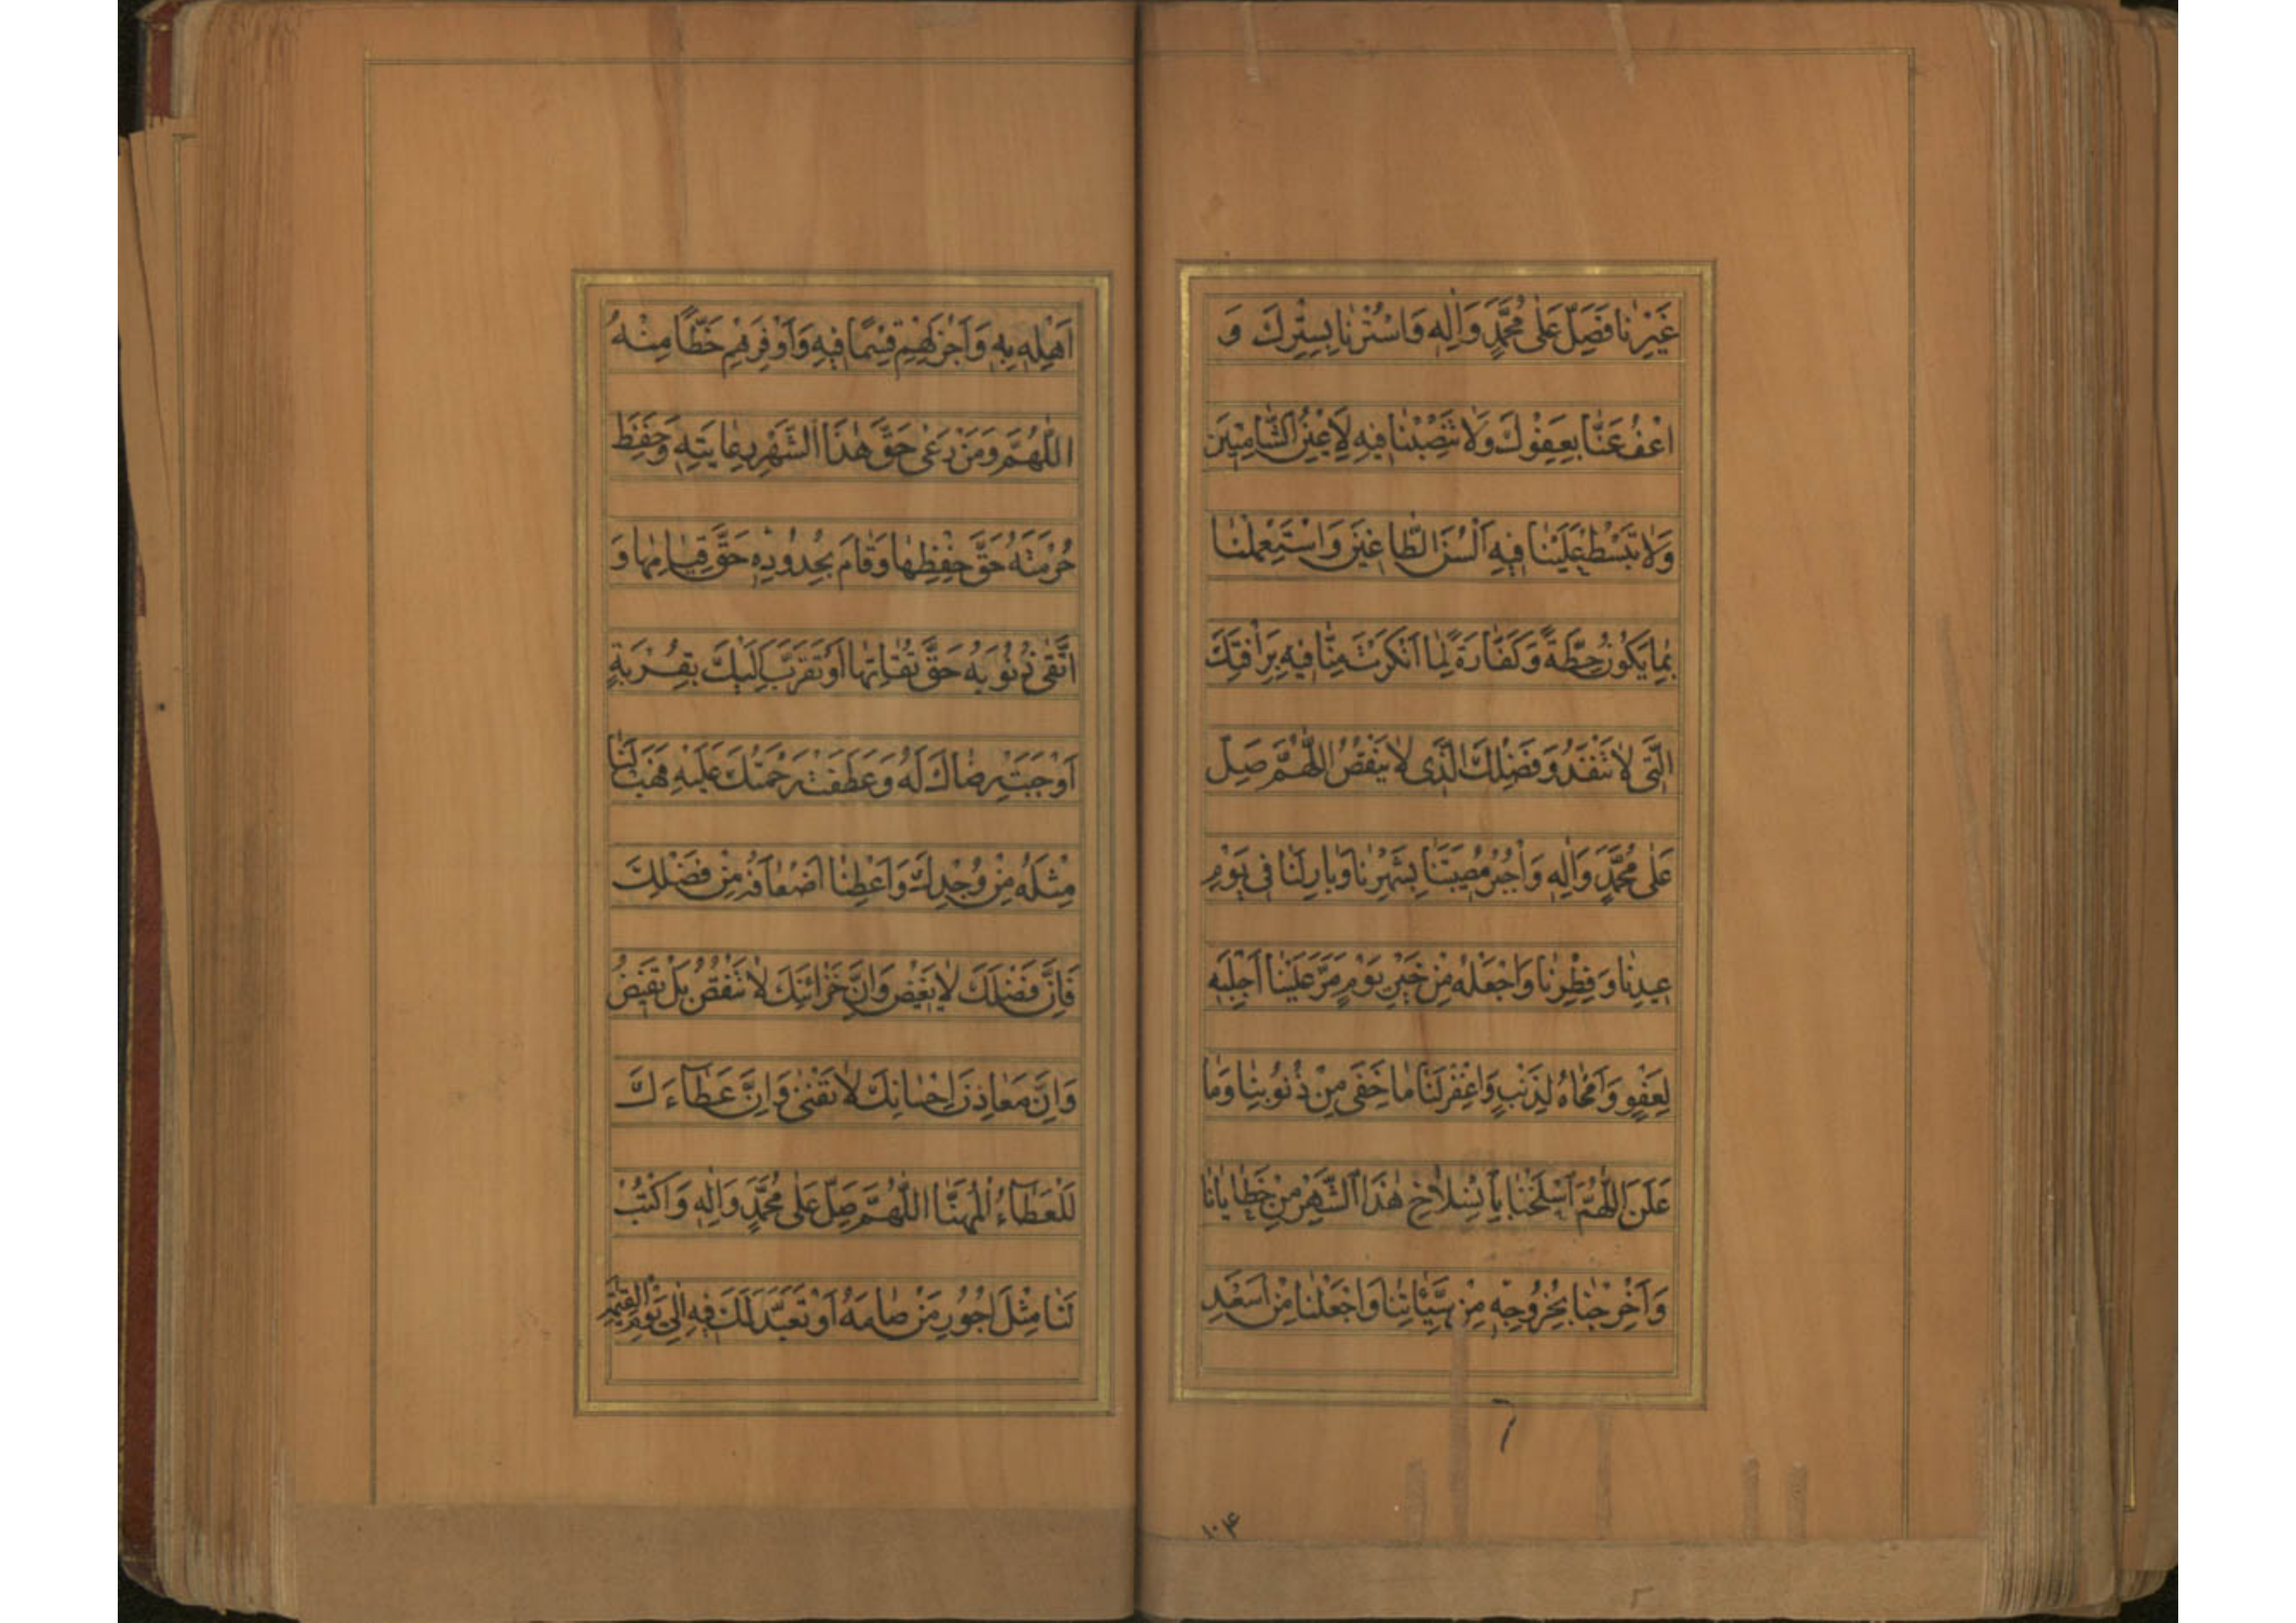 غَيْرِنَا فَصَلِّ عَلٰى مُحَمَّدٍ وَاٰلِهٖ وَاسْتُرْنَا بِسِتْرِكَ وَ
اعْفُ عَنَّا بِعَفْوِكَ وَلَا تَنْصِبْنَا فِيهِ لِاَعْيُنِ الشَّامِتِينَ
وَلَا تَبْسُطْ عَلَيْنَا فِيهِ اَلْسُنَ الطَّاغِينَ وَاسْتَعْمِلْنَا
بِمَا يَكُونُ حِطَّةً وَكَفَّارَةً لِمَا اَنْكَرْتَ مِنَّا فِيهِ بِرَاْفَتِكَ
الَّتِى لَا تَنْفَدُ وَفَضْلِكَ الَّذِى لَا يَنْقُصُ اللّٰهُمَّ صَلِّ
عَلٰى مُحَمَّدٍ وَاٰلِهٖ وَاجْبُرْ مُصِيبَتَنَا بِشَهْرِنَا وَبَارِكْ لَنَا فِى يَوْمِ
عِيدِنَا وَفِطْرِنَا وَاجْعَلْهُ مِنْ خَيْرِ يَوْمٍ مَرَّ عَلَيْنَا اَجْلَبِهٖ
لِعَفْوٍ وَاَمْحَاهُ لِذَنْبٍ وَاغْفِرْ لَنَا مَا خَفِىَ مِنْ ذُنُوبِنَا وَمَا
عَلَنَ اللّٰهُمَّ اسْلَخْنَا بِاِنْسِلَاخِ هٰذَا الشَّهْرِ مِنْ خَطَايَانَا
وَاَخْرِجْنَا بِخُرُوجِهٖ مِنْ سَيِّئَاتِنَا وَاجْعَلْنَا مِنْ اَسْعَدِ
۱۰۴
اَهْلِهٖ بِهٖ وَاَجْزَلِهِمْ قِسْمًا فِيهِ وَاَوْفَرِهِمْ حَظًّا مِنْهُ
اللّٰهُمَّ وَمَنْ رَعٰى حَقَّ هٰذَا الشَّهْرِ بِرِعَايَتِهٖ وَحَفِظَ
حُرْمَتَهُ حَقَّ حِفْظِهَا وَقَامَ بِحُدُودِهٖ حَقَّ قِيَامِهَا وَ
اتَّقٰى ذُنُوبَهُ حَقَّ تُقَاتِهَا اَوْ تَقَرَّبَ اِلَيْكَ بِقُرْبَةٍ
اَوْجَبَتْ رِضَاكَ لَهُ وَعَطَفَتْ رَحْمَتَكَ عَلَيْهِ فَهَبْ لَنَا
مِثْلَهُ مِنْ وُجْدِكَ وَاَعْطِنَا اَضْعَافَهُ مِنْ فَضْلِكَ
فَاِنَّ فَضْلَكَ لَا يَغِيضُ وَاِنَّ خَزَائِنَكَ لَا تَنْقُصُ بَلْ تَفِيضُ
وَاِنَّ مَعَادِنَ اِحْسَانِكَ لَا تَفْنٰى وَاِنَّ عَطَآءَكَ
لَلْعَطَآءُ الْمُهَنَّا اللّٰهُمَّ صَلِّ عَلٰى مُحَمَّدٍ وَاٰلِهٖ وَاكْتُبْ
لَنَا مِثْلَ اُجُورِ مَنْ صَامَهُ اَوْ تَعَبَّدَ لَكَ فِيهِ اِلٰى يَوْمِ الْقِيٰمَةِ